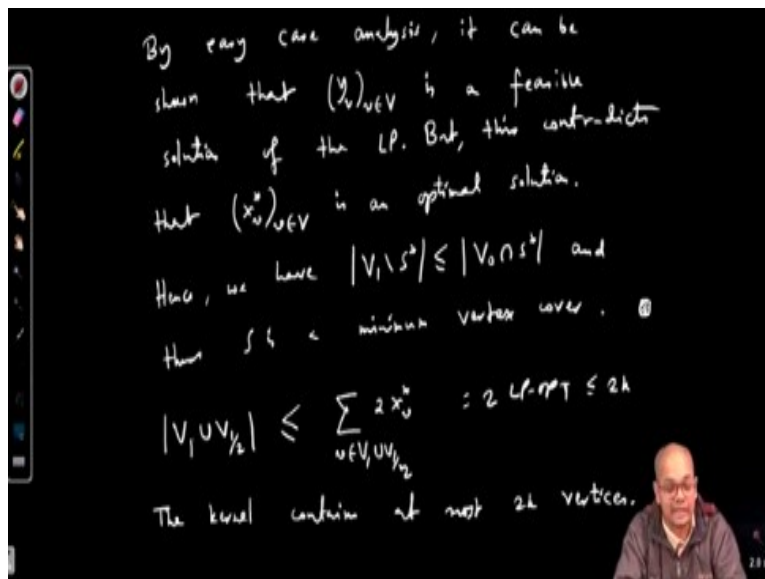 By easy case analysis, it can be
shown that (y_v)_{v∈V} is a feasible
solution of the LP. But, this contradicts
that (x*_v)_{v∈V} is an optimal solution.
Hence, we have |V₁ \ S*| ≤ |V₀ ∩ S*| and
thus S is a minimum vertex cover.
|V₁ ∪ V_{1/2}| ≤ ∑_{v∈V₁∪V_{1/2}} 2x*_v = 2 LP-OPT ≤ 2k
The kernel contains at most 2k vertices.